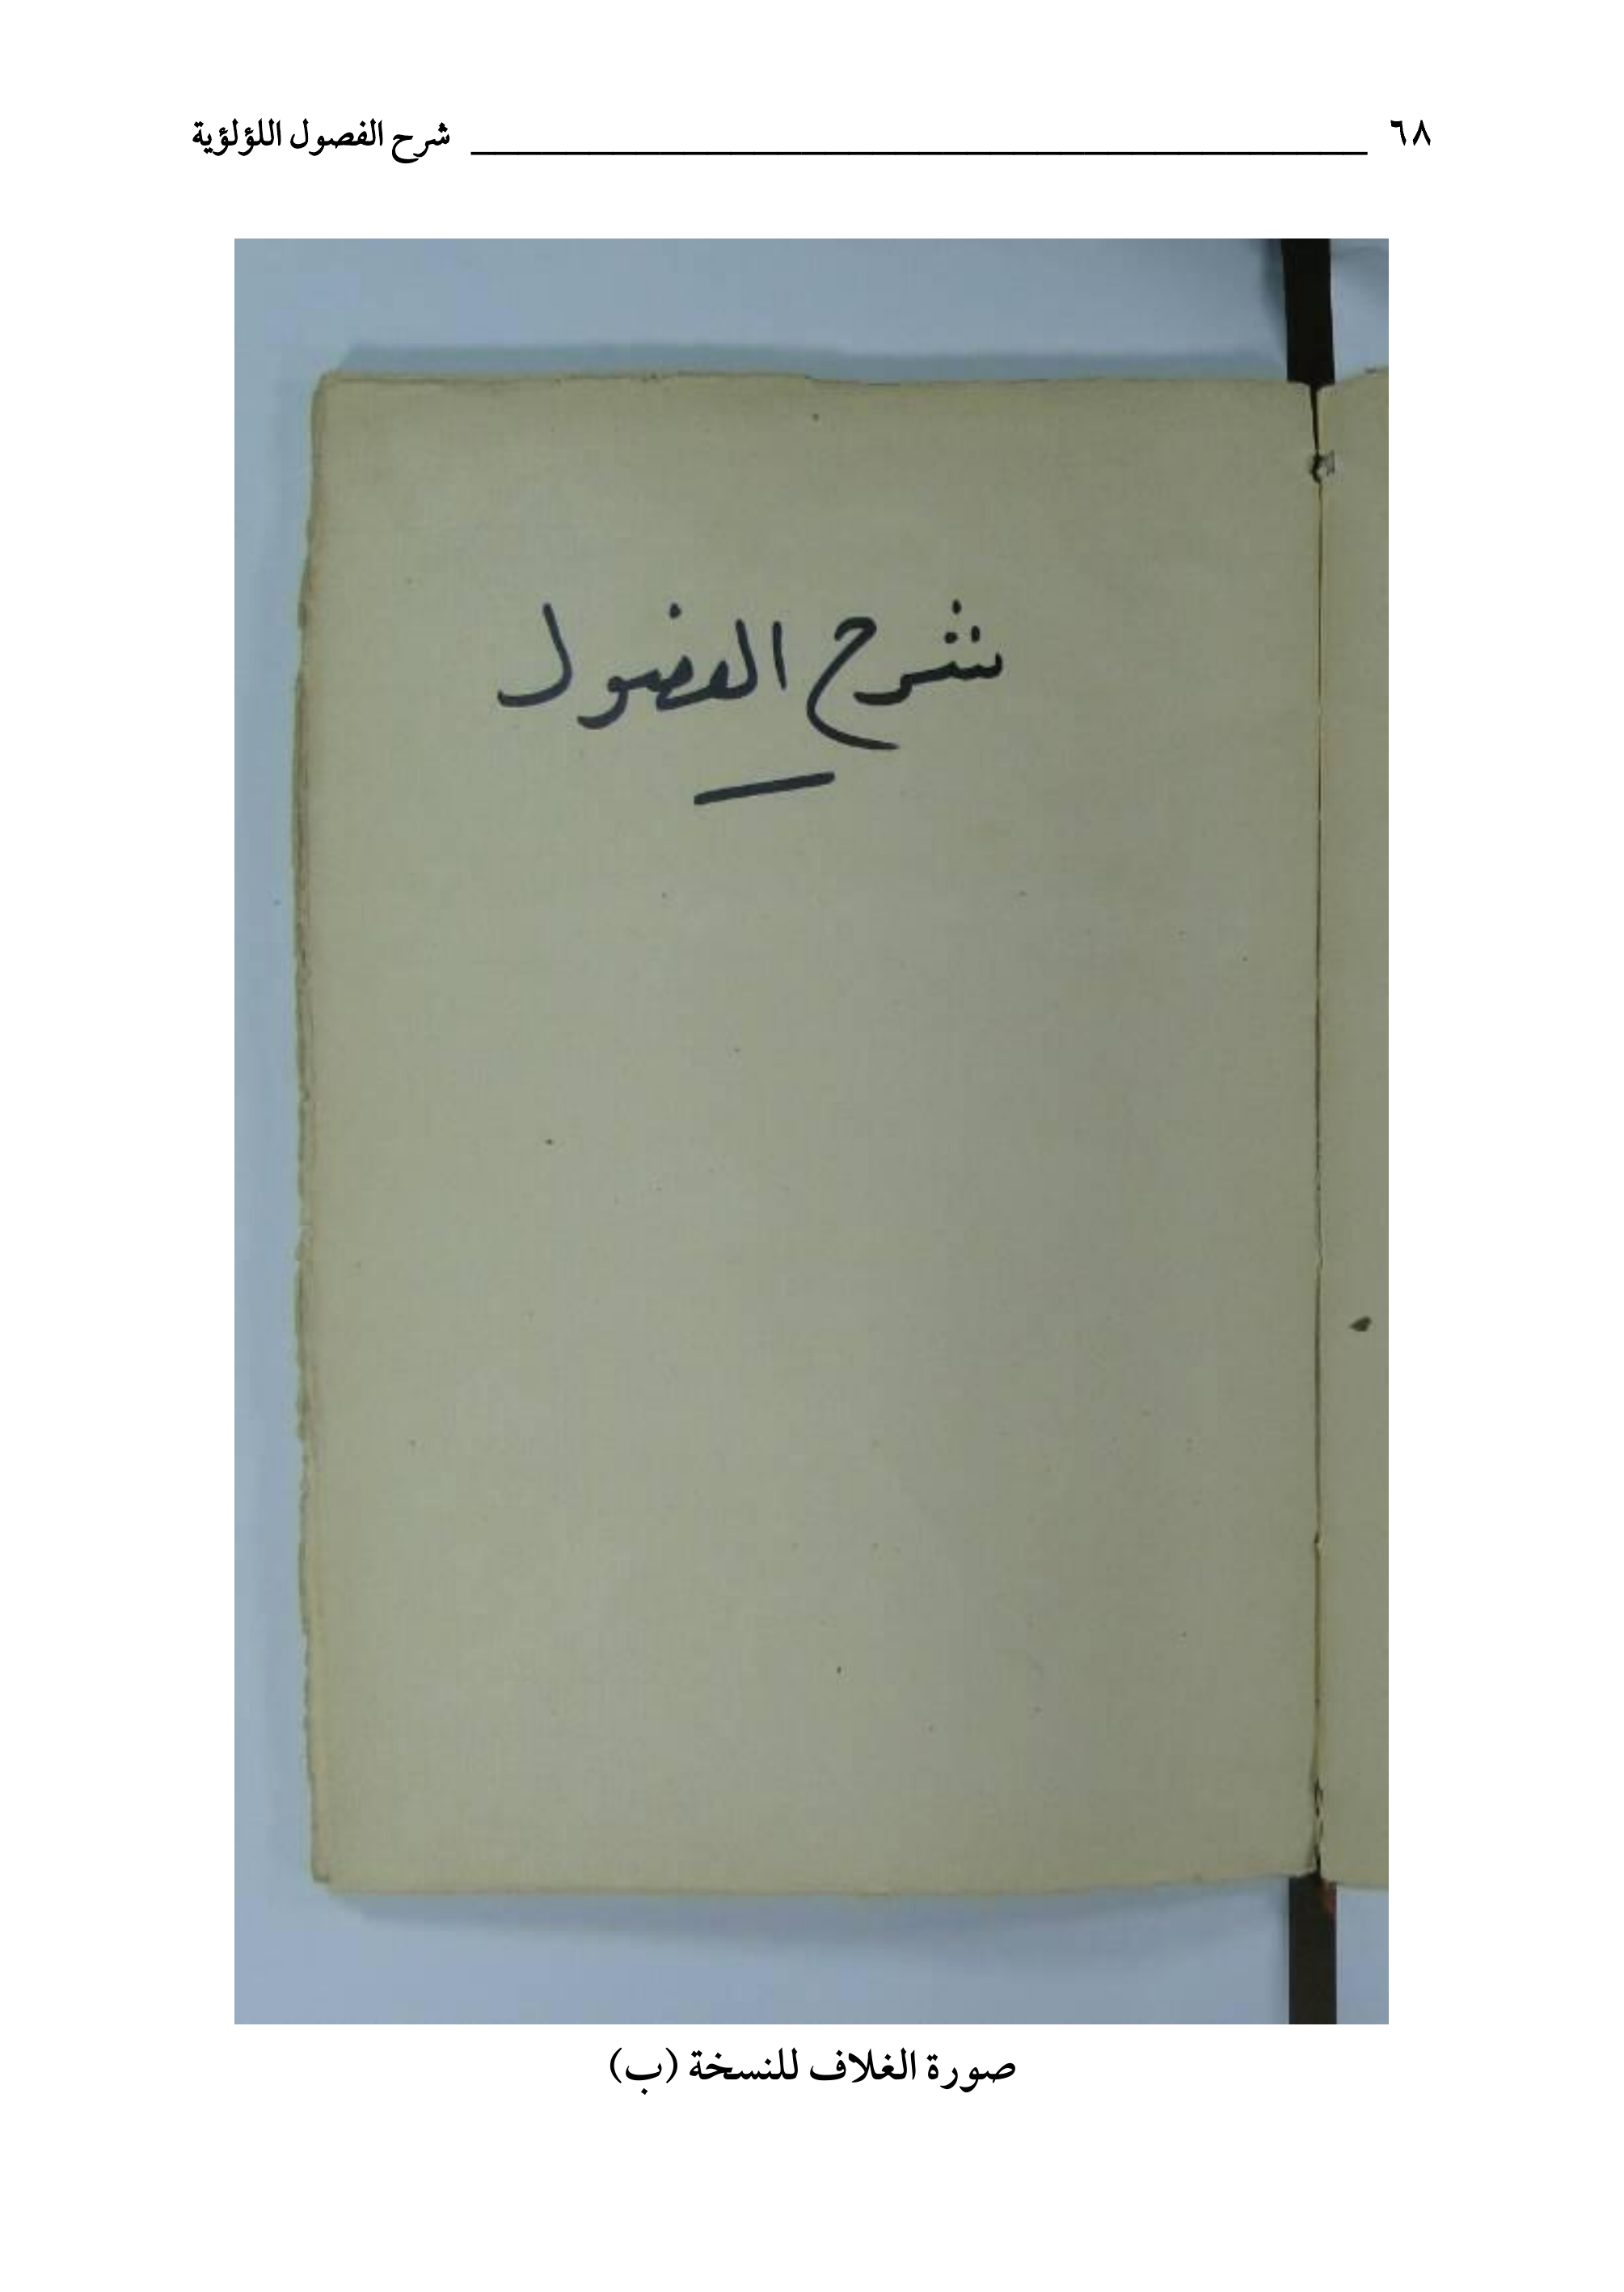 ٦٨ شرح الفصول اللؤلؤية
شرح الفصول
صورة الغلاف للنسخة (ب)